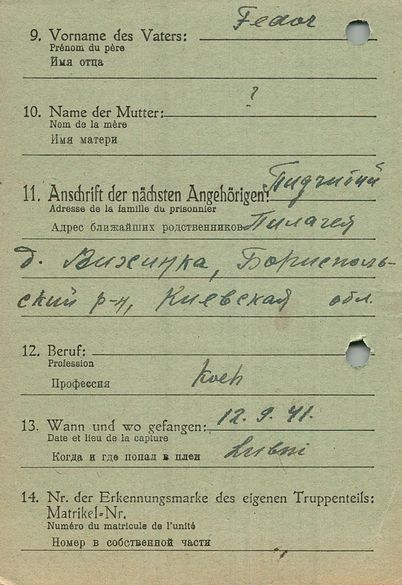 9. Vorname des Vaters: Fedor
Prénom du père
Имя отца
10. Name der Mutter: ?
Nom de la mère
Имя матери
11. Anschrift der nächsten Angehörigen:
Adresse de la famille du prisonnier
Адрес ближайших родственников Пилагея
д. Вихинка, Борисполь-
ский р-н, Киевская обл.
12. Beruf:
Profession
Профессия Koch
13. Wann und wo gefangen: 12.9.41.
Date et lieu de la capture
Когда и где попал в плен Lubni
14. Nr. der Erkennungsmarke des eigenen Truppenteils:
Matrikel=Nr.
Numéro du matricule de l'unité
Номер в собственной части